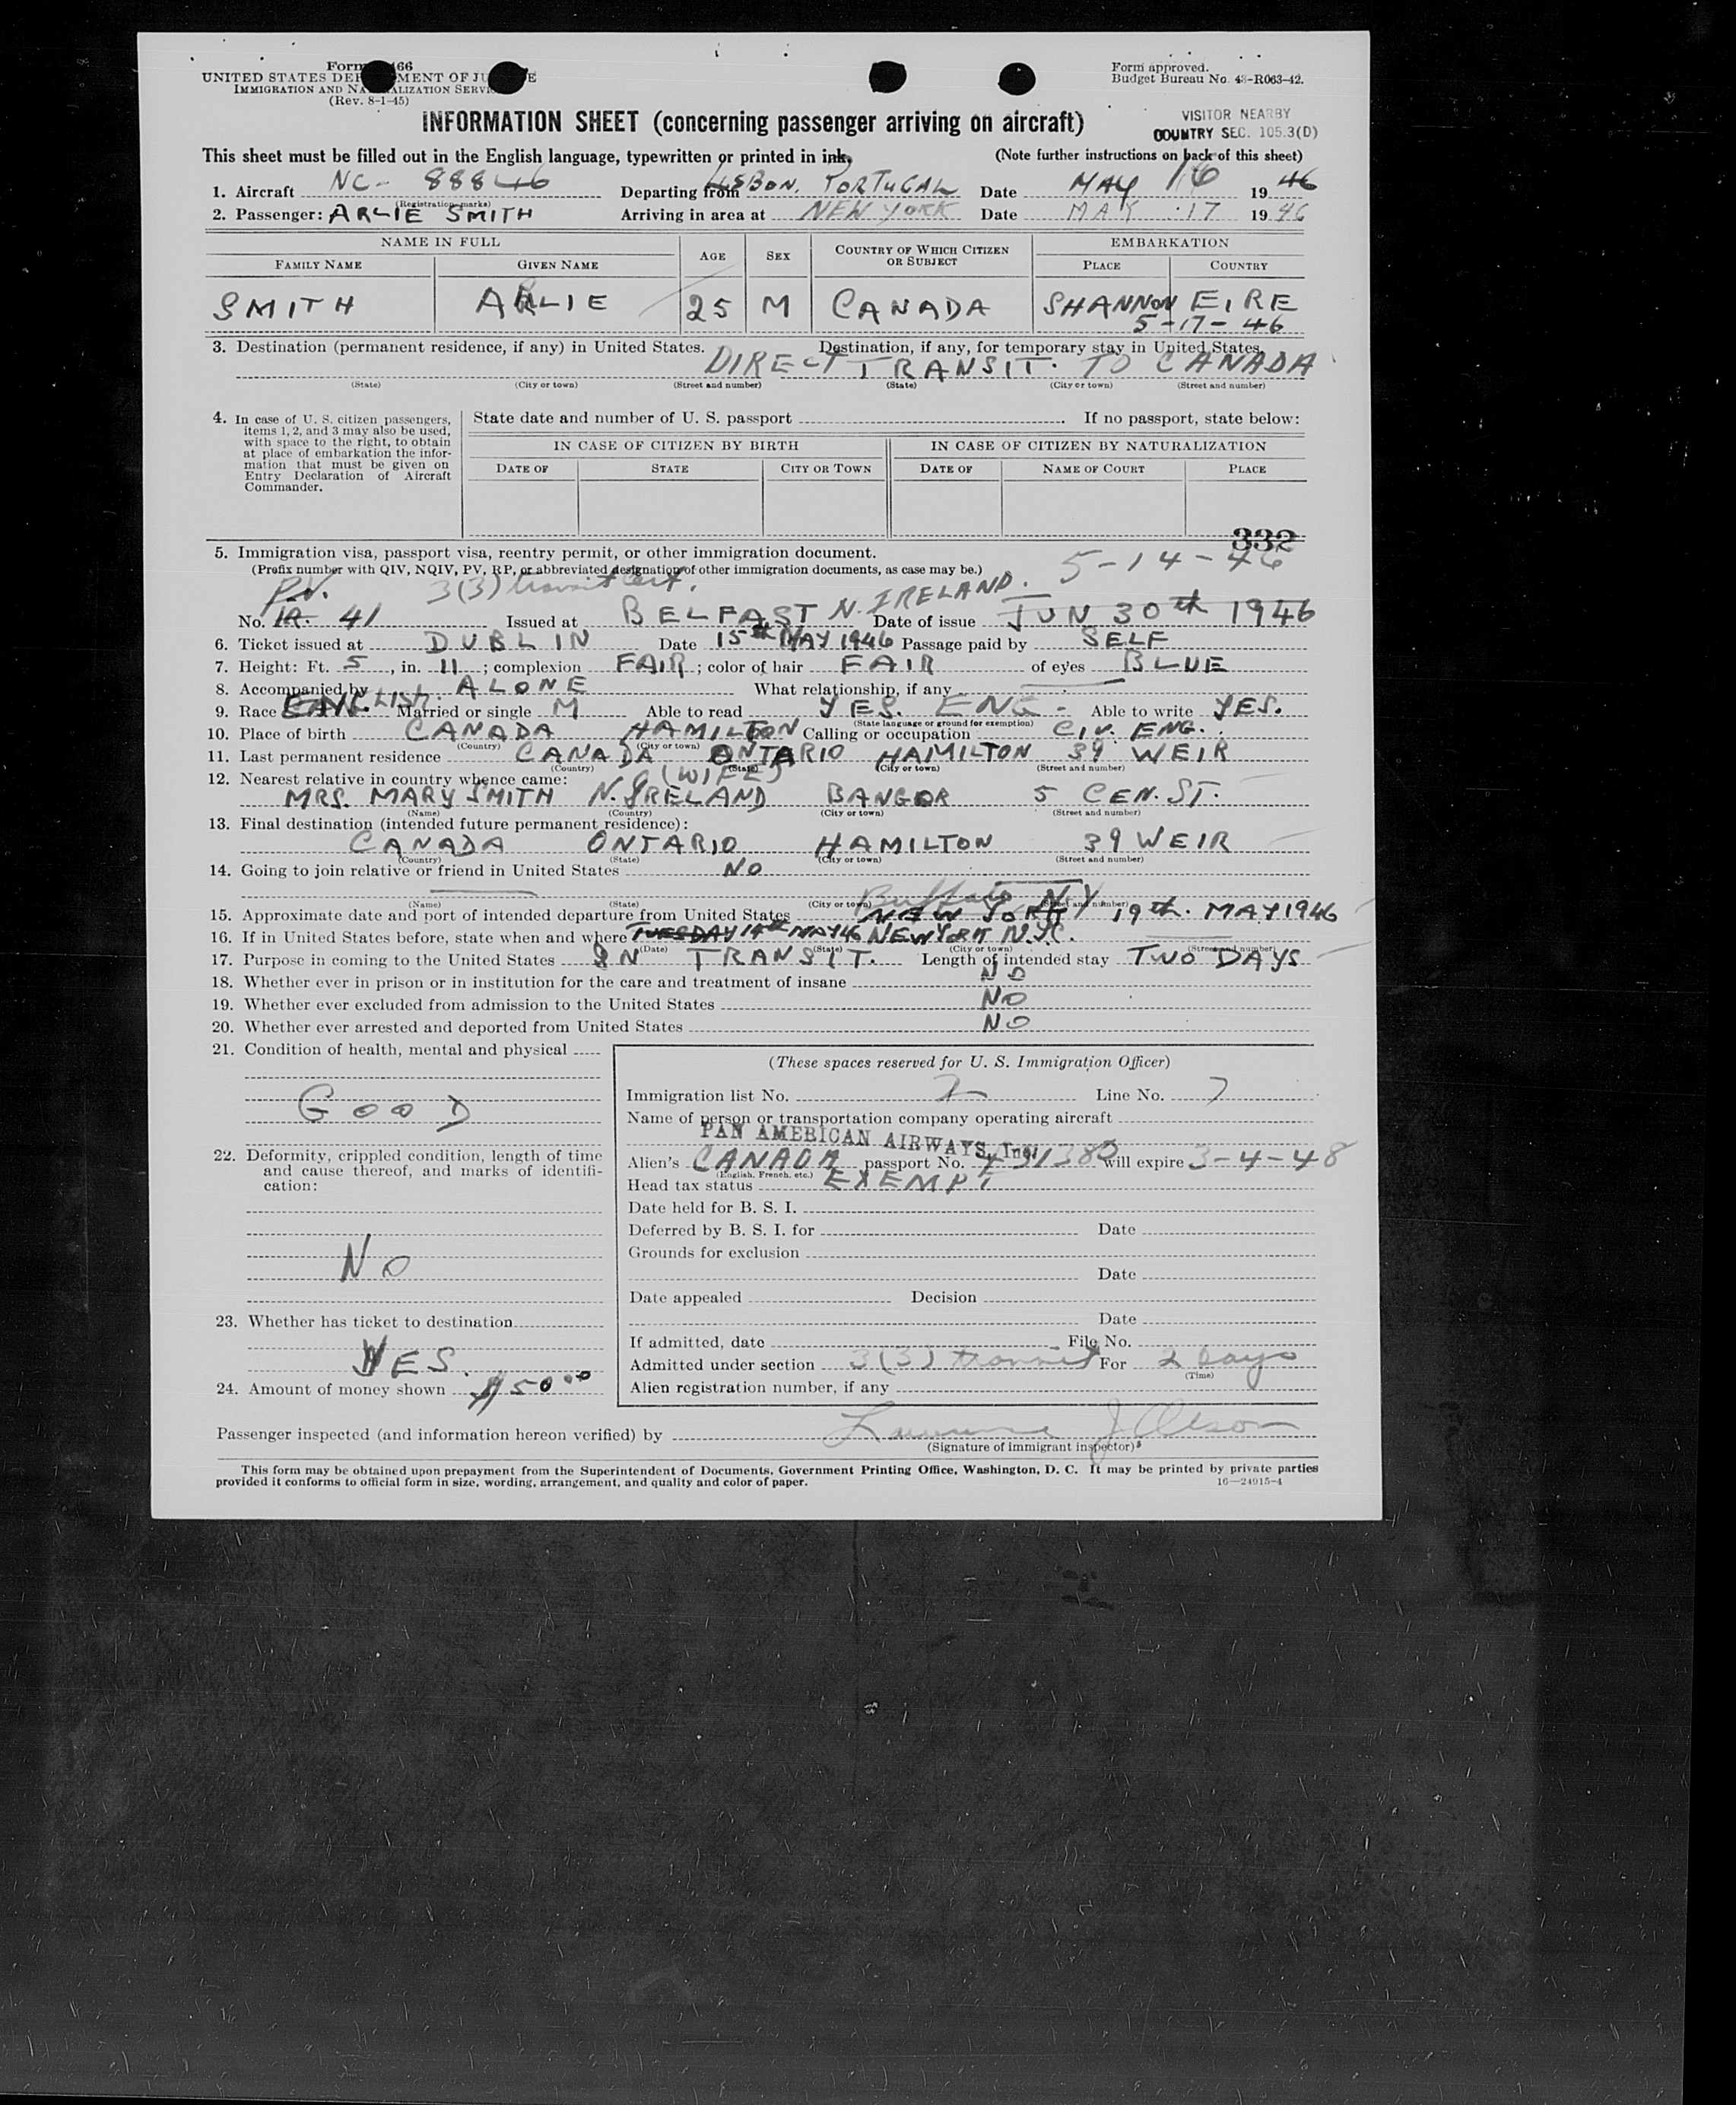 Form 66
UNITED STATES DEP MENT OF JU E
IMMIGRATION AND NA ALIZATION SERVI
(Rev. 8-1-45)
Form approved.
Budget Bureau No. 43-R063-42.
INFORMATION SHEET (concerning passenger arriving on aircraft)
VISITOR NEARBY
COUNTRY SEC. 105.3(D)
This sheet must be filled out in the English language, typewritten or printed in ink. (Note further instructions on back of this sheet)
1. Aircraft NC- 88846 Departing from LISBON, PORTUGAL Date MAY 16 1946
(Registration marks)
2. Passenger: ARLIE SMITH Arriving in area at NEW YORK Date MAY 17 1946
NAME IN FULL AGE SEX COUNTRY OF WHICH CITIZEN OR SUBJECT EMBARKATION
FAMILY NAME GIVEN NAME PLACE COUNTRY
SMITH ARLIE 25 M CANADA SHANNON EIRE
5-17-46
3. Destination (permanent residence, if any) in United States. Destination, if any, for temporary stay in United States.
DIRECT TRANSIT. TO CANADA
(State) (City or town) (Street and number) (State) (City or town) (Street and number)
4. In case of U. S. citizen passengers, items 1, 2, and 3 may also be used, with space to the right, to obtain at place of embarkation the information that must be given on Entry Declaration of Aircraft Commander.
State date and number of U. S. passport If no passport, state below:
IN CASE OF CITIZEN BY BIRTH IN CASE OF CITIZEN BY NATURALIZATION
DATE OF STATE CITY OR TOWN DATE OF NAME OF COURT PLACE
332
5. Immigration visa, passport visa, reentry permit, or other immigration document. 5-14-46
(Prefix number with QIV, NQIV, PV, RP, or abbreviated designation of other immigration documents, as case may be.)
P.V. 3(3) transit cert.
No. 41 Issued at BELFAST N. IRELAND. Date of issue JUN 30th 1946
6. Ticket issued at DUBLIN Date 15th MAY 1946 Passage paid by SELF
7. Height: Ft. 5, in. 11; complexion FAIR; color of hair FAIR of eyes BLUE
8. Accompanied by ALONE What relationship, if any
9. Race ENGLISH. Married or single M Able to read YES. ENG- Able to write YES.
(State language or ground for exemption)
10. Place of birth CANADA HAMILTON Calling or occupation CIV. ENG.
(Country) (City or town)
11. Last permanent residence CANADA ONTARIO HAMILTON 39 WEIR
(Country) (State) (City or town) (Street and number)
12. Nearest relative in country whence came: (WIFE)
MRS. MARY SMITH N. IRELAND BANGOR 5 CEN. ST.
(Name) (Country) (City or town) (Street and number)
13. Final destination (intended future permanent residence):
CANADA ONTARIO HAMILTON 39 WEIR
(Country) (State) (City or town) (Street and number)
14. Going to join relative or friend in United States NO
(Name) (State) (City or town) (Street and number)
Buffalo NY
15. Approximate date and port of intended departure from United States NEW YORK 19th. MAY 1946
16. If in United States before, state when and where TUESDAY 14th MAY 46 NEW YORK N.Y.C.
(Date) (State) (City or town) (Street and number)
17. Purpose in coming to the United States IN TRANSIT. Length of intended stay TWO DAYS
18. Whether ever in prison or in institution for the care and treatment of insane NO
19. Whether ever excluded from admission to the United States NO
20. Whether ever arrested and deported from United States NO
21. Condition of health, mental and physical
GOOD
22. Deformity, crippled condition, length of time and cause thereof, and marks of identification:
NO
23. Whether has ticket to destination
YES.
24. Amount of money shown $50.00
(These spaces reserved for U. S. Immigration Officer)
Immigration list No. 2 Line No. 7
Name of person or transportation company operating aircraft
PAN AMERICAN AIRWAYS, Inc.
Alien's CANADA passport No. 4-31380 will expire 3-4-48
(English, French, etc.)
Head tax status EXEMPT
Date held for B. S. I.
Deferred by B. S. I. for Date
Grounds for exclusion
Date
Date appealed Decision
Date
If admitted, date File No.
Admitted under section 3(3) transit For 2 Days
(Time)
Alien registration number, if any
Passenger inspected (and information hereon verified) by J. Olson
(Signature of immigrant inspector)
This form may be obtained upon prepayment from the Superintendent of Documents, Government Printing Office, Washington, D. C. It may be printed by private parties
provided it conforms to official form in size, wording, arrangement, and quality and color of paper. 16—24915-4